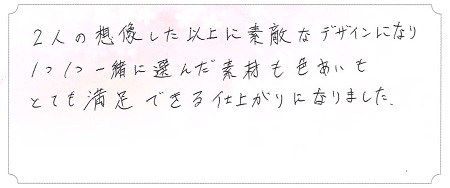 2人の想像した以上に素敵なデザインになり
1つ1つ一緒に選んだ素材も色あいも
とても満足できる仕上がりになりました.